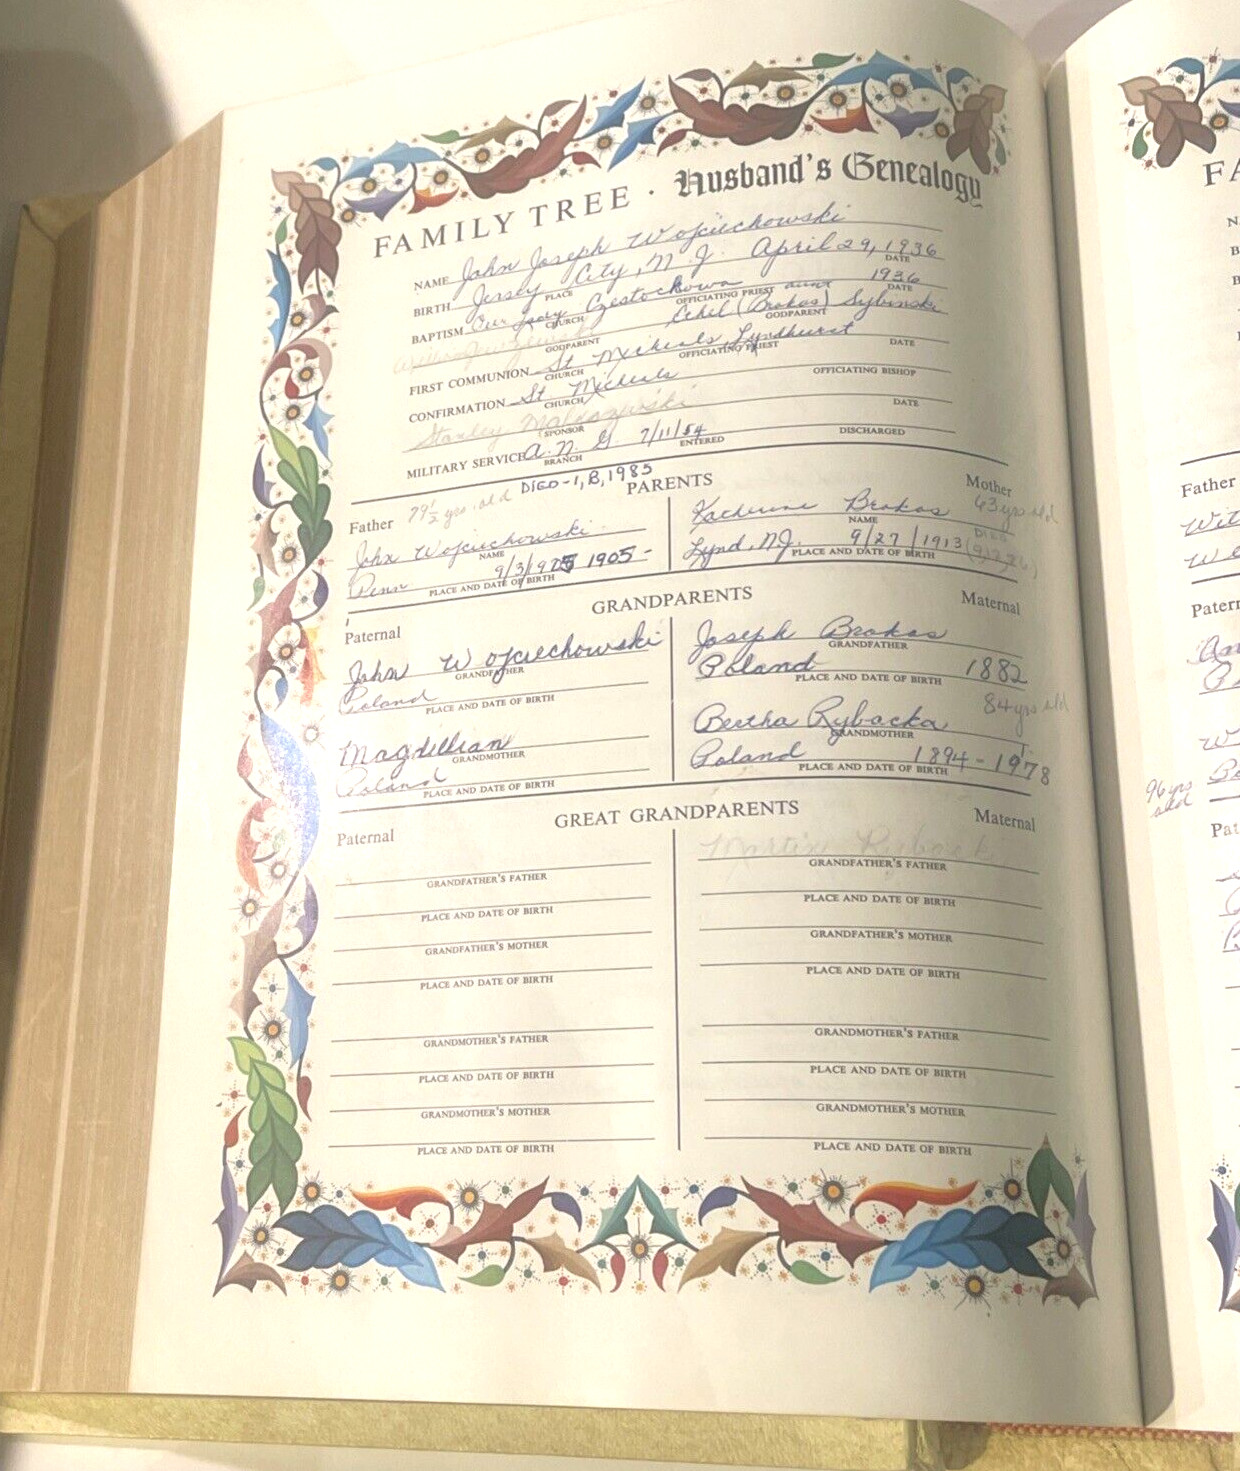 FAMILY TREE · Husband's Genealogy
NAME John Joseph Wojciechowski
BIRTH Jersey City, N.J. April 29, 1936
PLACE DATE
BAPTISM Our Lady Czestochowa aunt 1936
CHURCH OFFICIATING PRIEST DATE
Ethel (Brakas) Sybinski
GODPARENT GODPARENT
FIRST COMMUNION St Micheals, Lyndhurst
CHURCH OFFICIATING PRIEST DATE
CONFIRMATION St. Micheals
CHURCH OFFICIATING BISHOP
Stanley
SPONSOR DATE
MILITARY SERVICE A. N. G. 7/11/54
BRANCH ENTERED DISCHARGED
79½ yrs. old DIED-1,8,1985
PARENTS
Father Mother
63 yrs old
John Wojciechowski Katherine Brakas
NAME NAME
Penn 9/3/1925 1905- Lynd, N.J. 9/27/1913 DIED
PLACE AND DATE OF BIRTH PLACE AND DATE OF BIRTH
GRANDPARENTS
Paternal Maternal
John Wojciechowski Joseph Brakas
GRANDFATHER GRANDFATHER
Poland Poland 1882
PLACE AND DATE OF BIRTH PLACE AND DATE OF BIRTH
84 yrs old
Magdillian Bertha Rybacka
GRANDMOTHER GRANDMOTHER
Poland Poland 1894-1978
PLACE AND DATE OF BIRTH PLACE AND DATE OF BIRTH
GREAT GRANDPARENTS
Paternal Maternal
Martin Rybacki
GRANDFATHER'S FATHER GRANDFATHER'S FATHER
PLACE AND DATE OF BIRTH PLACE AND DATE OF BIRTH
GRANDFATHER'S MOTHER GRANDFATHER'S MOTHER
PLACE AND DATE OF BIRTH PLACE AND DATE OF BIRTH
GRANDMOTHER'S FATHER GRANDMOTHER'S FATHER
PLACE AND DATE OF BIRTH PLACE AND DATE OF BIRTH
GRANDMOTHER'S MOTHER GRANDMOTHER'S MOTHER
PLACE AND DATE OF BIRTH PLACE AND DATE OF BIRTH
FA
Father
Wit
Patern
96 yrs
old
Pat